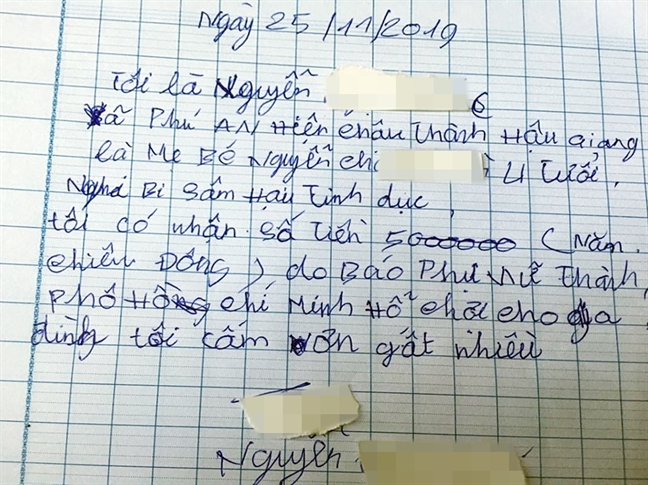 Ngày 25/11/2019
Tôi là Nguyễn
xã Phú AN Hiên Châu Thành Hậu Giang
là Mẹ Bé Nguyễn chi 4 Tuổi.
Nghá Bi Sấm Hại Tình dục,
tôi có nhận số tiền 5000000 (Năm
chiệu Đồng) do Báo Phụ Nữ Thành
Phố Hồ chí Minh Hổ chợi cho gia
đình tôi cấm ơn gất nhiều
Nguyễn